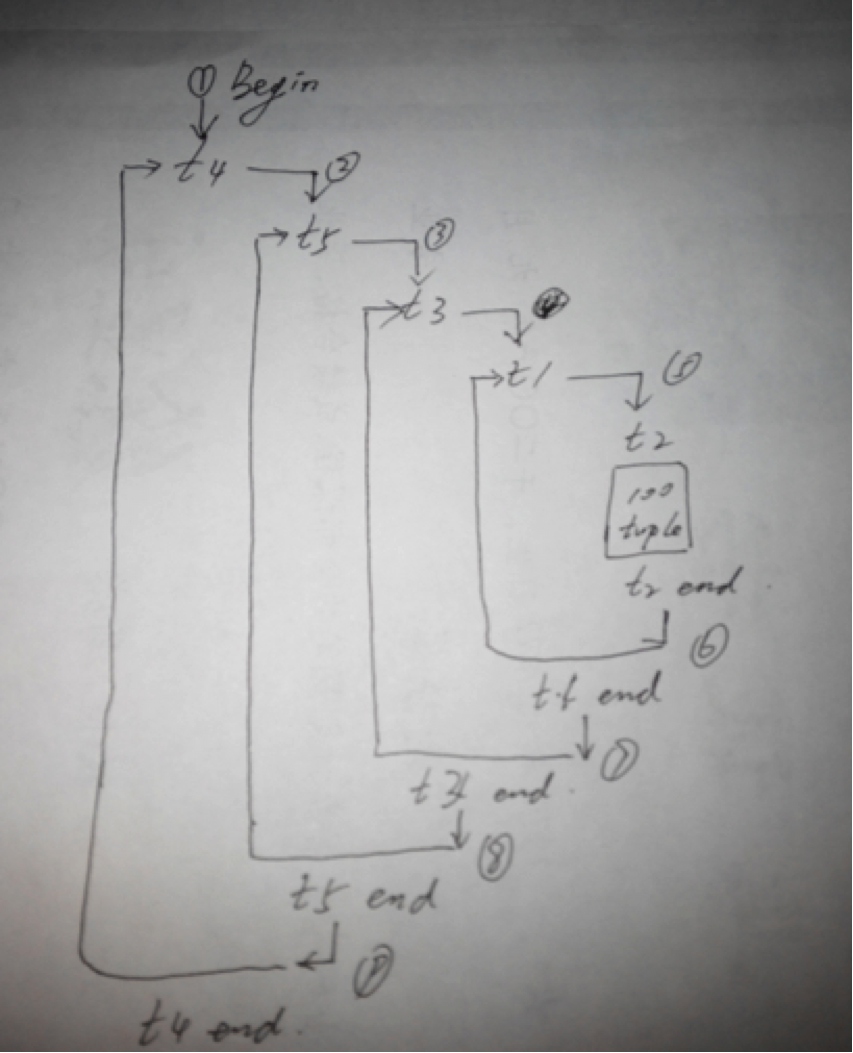 ① Begin
t4 ②
t5 ③
t3 ④
t1 ⑤
t2
100
tuple
t2 end.
⑥
t1 end
⑦
t3 end.
⑧
t5 end
⑨
t4 end.